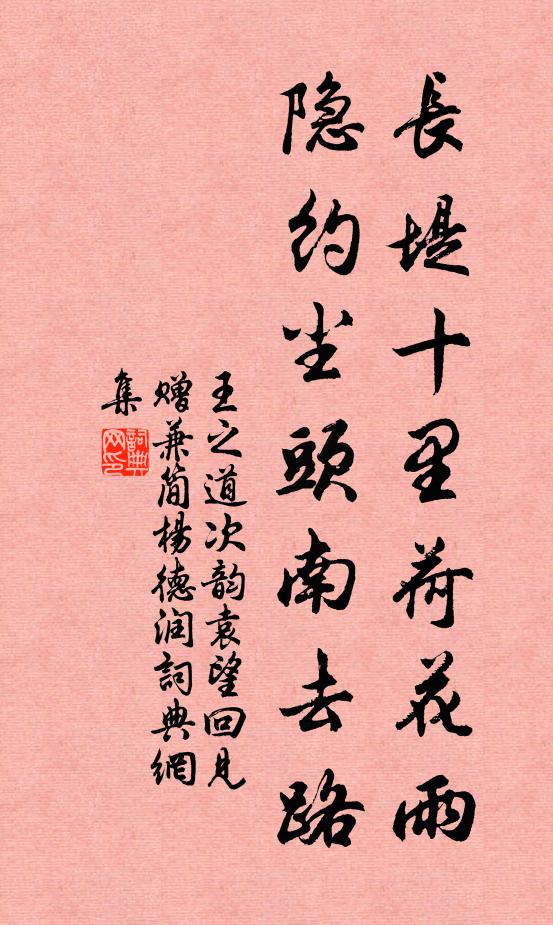 長堤十里荷花雨
隐約尘頭南去路
王之道次韵袁望回見
赠兼简楊德润詞典網
集
詞典
网印